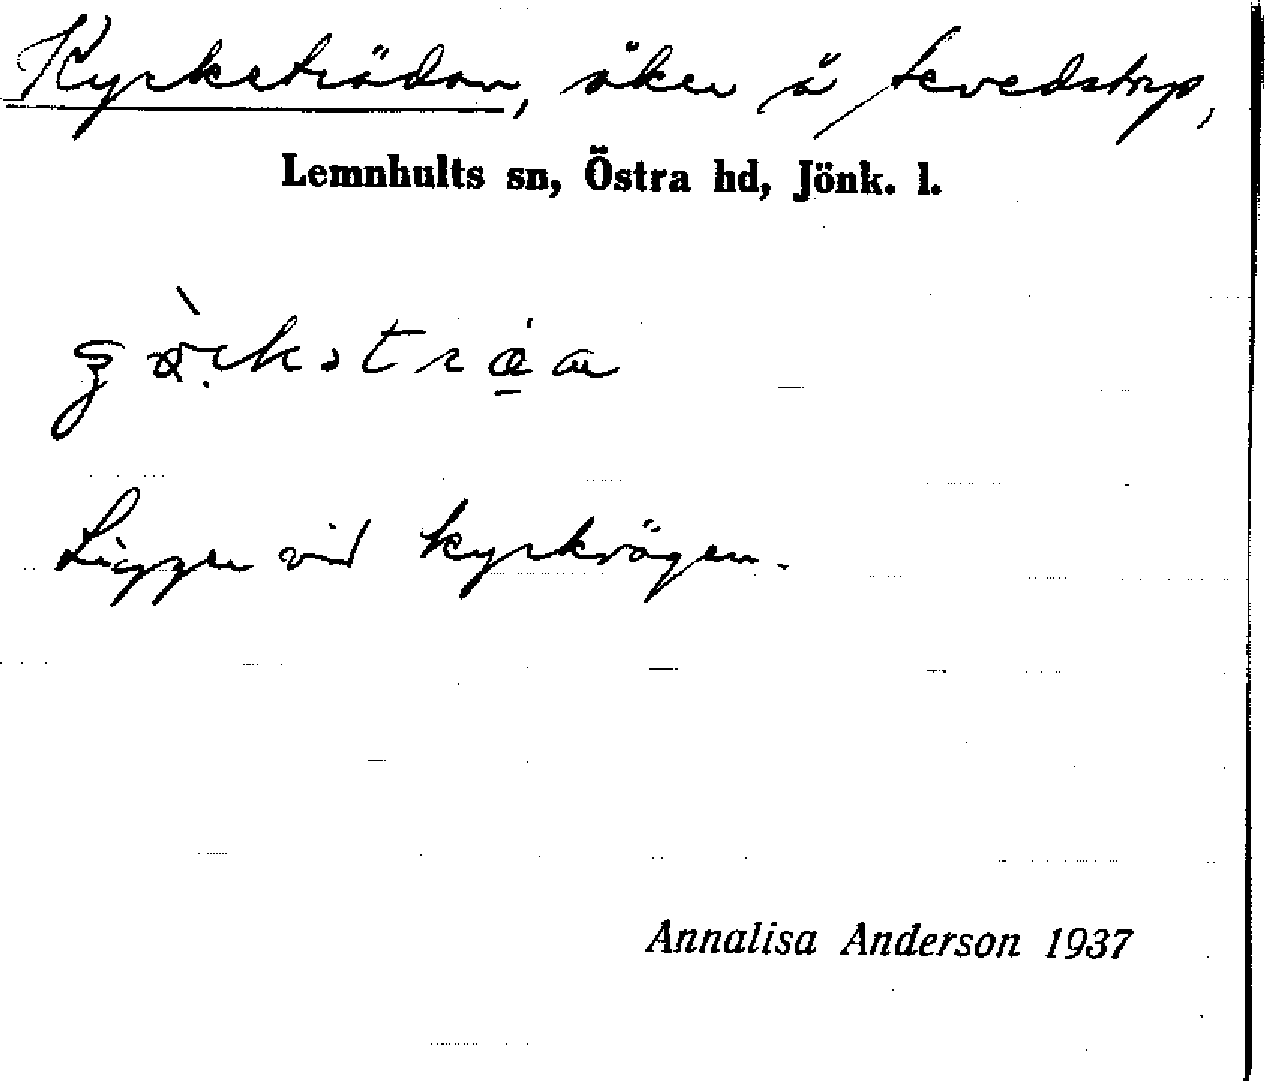 Kyrketrädan, åker å Levedstorp,
Lemnhults sn, Östra hd, Jönk. l.
Ligger vid kyrkvägen.
Annalisa Anderson 1937